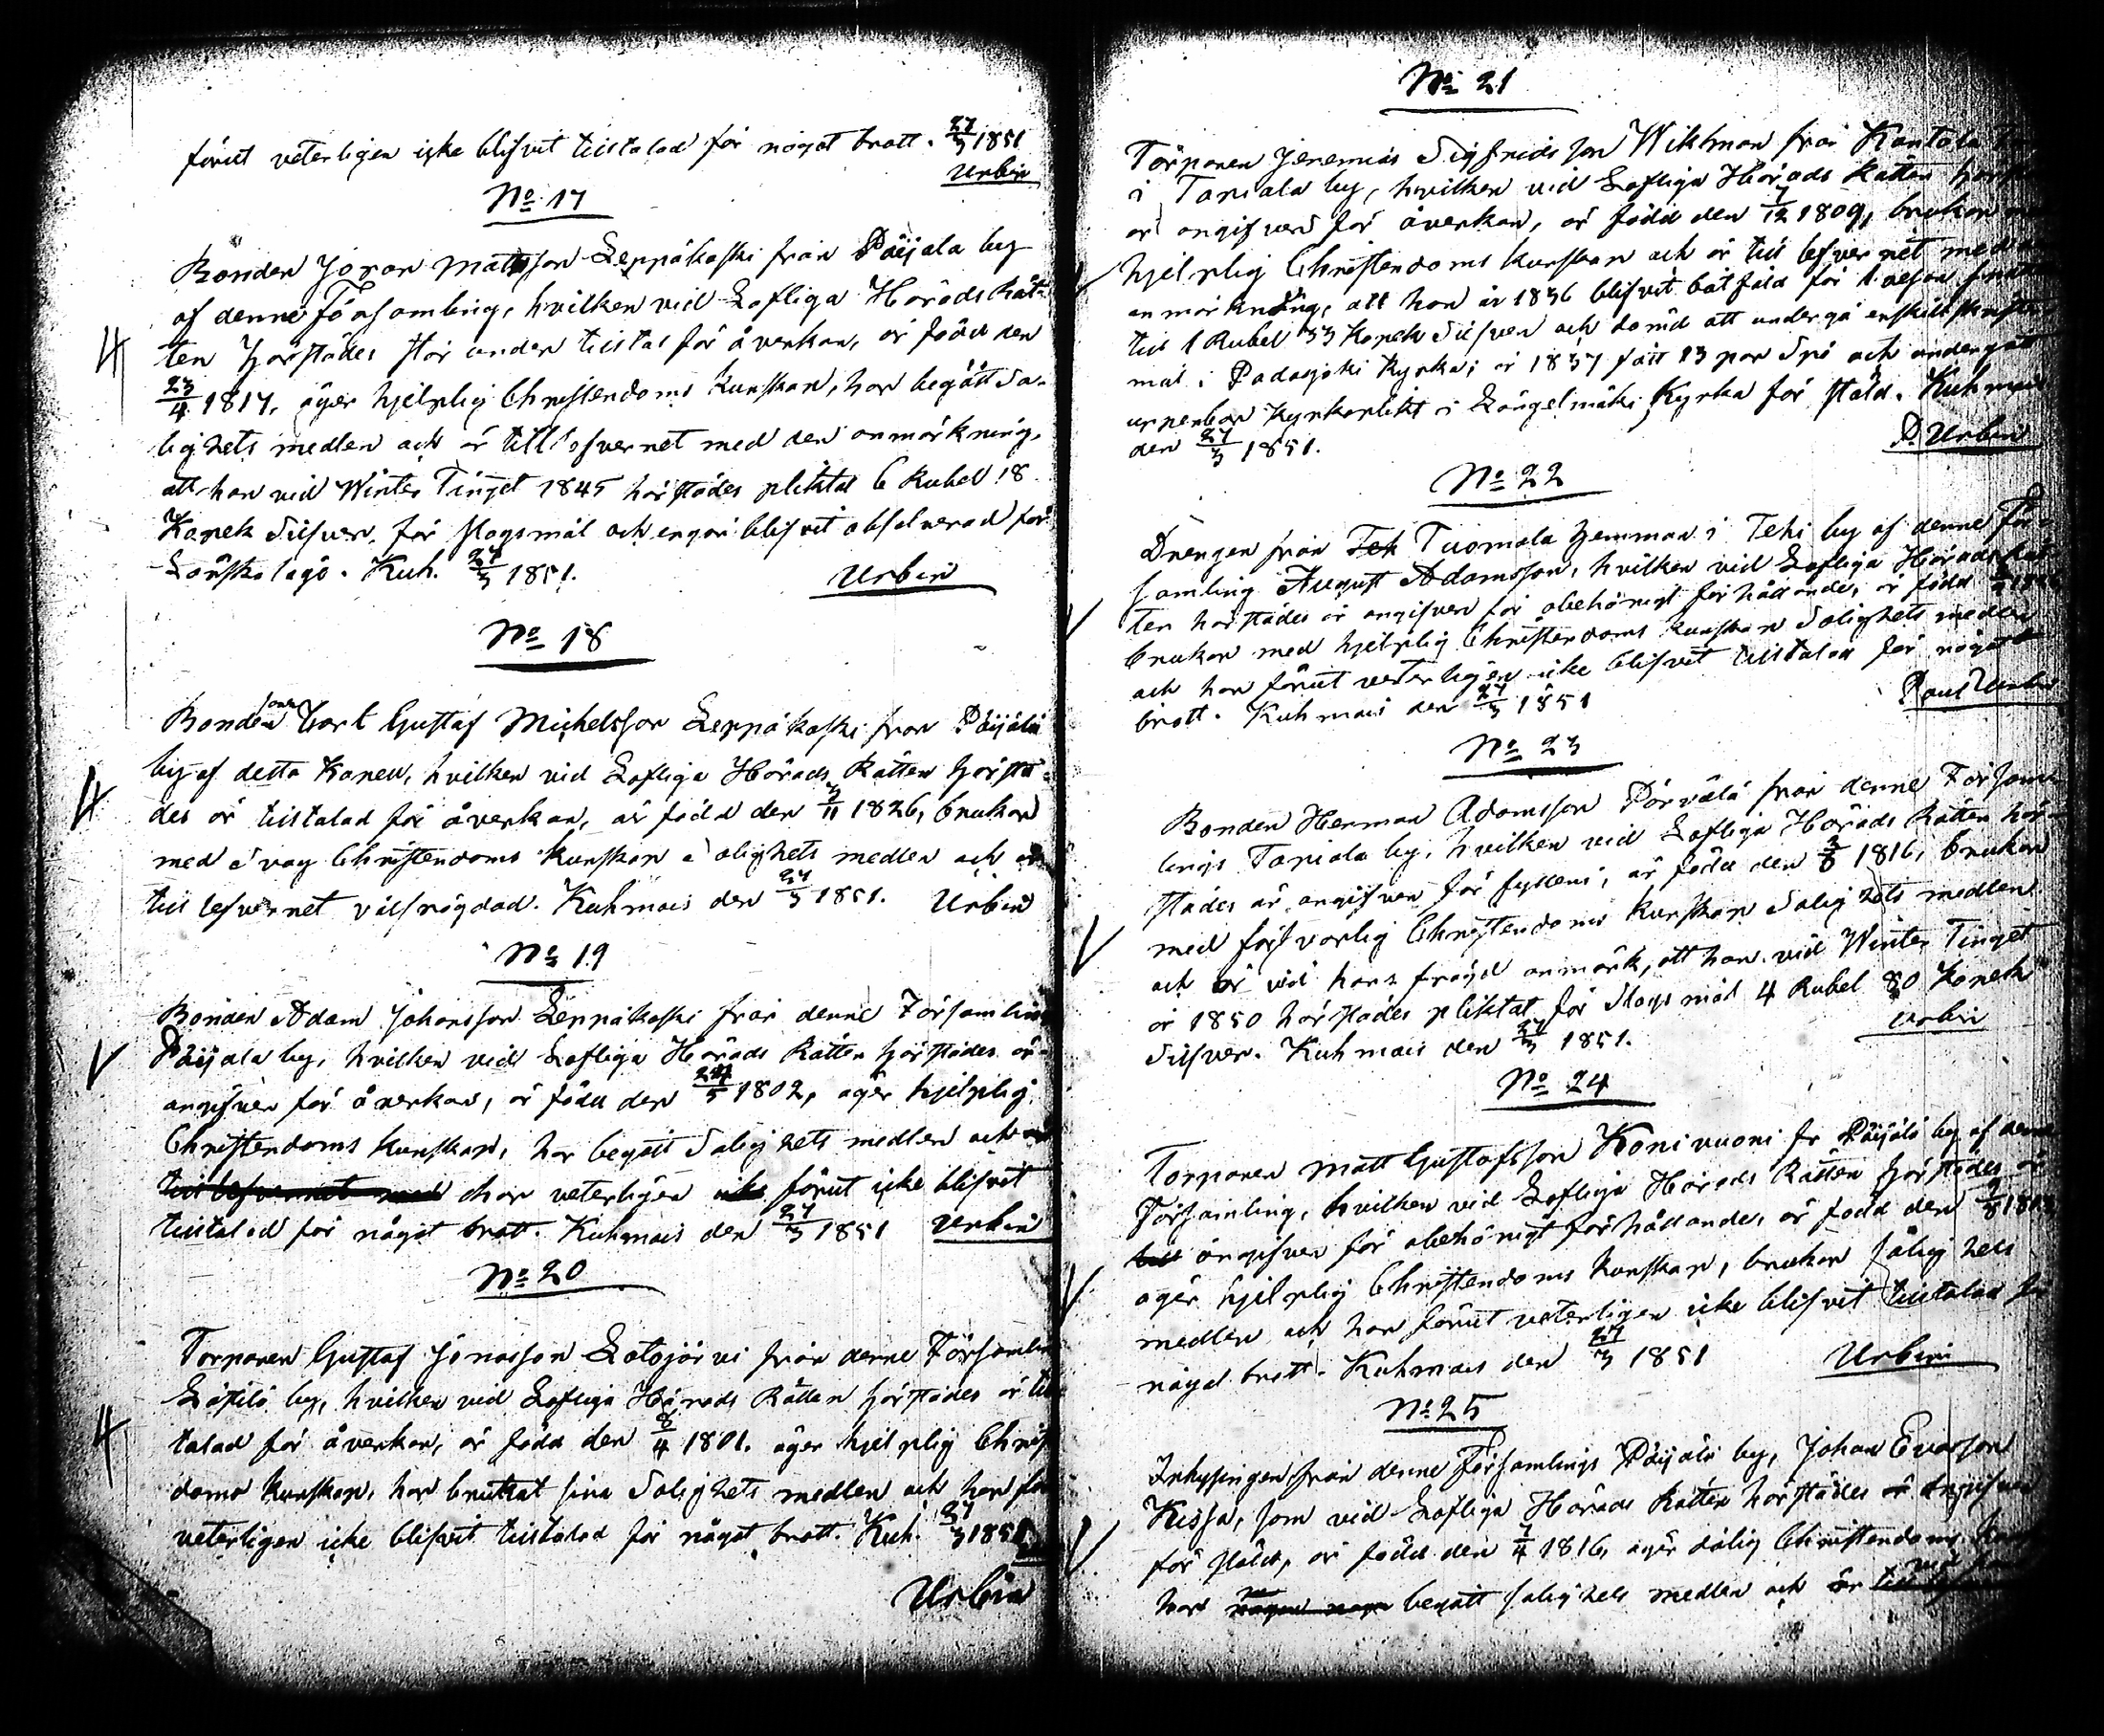 förut veterligen icke blifvit tilltalad för något brott. 27/3 1851
Urbin
No 17
Bonden Göran Mattsson Leppäkoski från Päijälä by
af denne Församling, hvilken vid Lofliga Härads Rät-
ten härstädes står under tilltal för åverkan, är född den
23/4 1817, äger hjelplig Christendoms kunskap, har begått Sa-
lighets medlen och är till lefvernet med den anmärkning,
att han vid Winter Tinget 1845 härstädes pliktat 6 Rubel 18
Kopek Silfver, för slagsmål och blifvit absolverad för
Lönskaläge. Kuh. 27/3 1851.
Urbin
No 18
Bondesonen Carl Gustaf Michelsson Leppäkoski från Päijälä
by af detta Kapell, hvilken vid Lofliga Härads Rätten härstä-
des är tilltalad för åverkan, är född den 3/11 1826, brukar
med svag Christendoms kunskap salighets medlen och är
till lefvernet välfrägdad. Kuhmois den 27/3 1851. Urbin
No 19
Bonden Adam Johansson Leppäkoski från denne Församlings
Päijälä by, hvilken vid Lofliga Härads Rätten härstädes är
angifven för åverkan, är född den 24/5 1802, äger hjelplig
Christendoms kunskap, har begått Salighets medlen och
till lefvernet med och har veterligen icke förut icke blifvit
tilltalad för något brott. Kuhmois den 27/3 1851 Urbin
No 20
Torparen Gustaf Jonasson Latojärvi från denne Församlings
by, hvilken vid Lofliga Härads Rätten härstädes är till-
talad för åverkan, är född den 8/4 1801. äger hjelplig Christen
doms kunskap, har brukat sina Salighets medlen och har för
veterligen icke blifvit tilltalad för något brott. Kuh. 27/3 1851
Urbin
No 21
Torparen Jeremias Sigfridsson Wikman från Kantola
i Tapiala by, hvilken vid Lofliga Härads Rätten härst
är angifven för åverkan, är född den 7/12 1809, brukar
hjelplig Christendoms kunskap och är till lefvernet med
anmärkning, att han år 1836 blifvit bötfäld för
till 1 Rubel 33 Kopek Silfver och dömd att undergå enskilt skrifte-
mål i Padasjoki Kyrka; år 1837 fått 13 par Spö och undergått
uppenbar Kyrkoplikt i Längelmäki Kyrka för stöld. Kuhmois
den 27/3 1851.
P. Urbin
No 22
Drengen från Teh Tuomala hemman i Tehi by af denne För-
samling August Adamsson, hvilken vid Lofliga Härads Rät-
ten härstädes är angifven för obehörigt förhållande, är född
brukar med hjelplig Christendoms kunskap Salighets medlen
och har förut veterligen icke blifvit tilltalad för något
brott. Kuhmois den 27/3 1851
Paul Urbin
No 23
Bonden Herman Adamsson Pärvälä från denne Försam-
lings Tapiala by, hvilken vid Lofliga Härads Rätten här-
städes är angifven för fylleri, är född den 3/8 1816, brukar
med försvarlig Christendoms kunskap Salighets medlen
och är vid hans frägd anmärk, att han vid Winter Tinget
år 1850 härstädes pliktat för Slagsmål 4 Rubel 80 Kopek
Silfver. Kuhmois den 27/3 1851.
Urbin
No 24
Torparen Matt Gustafsson Konivuori fr Päijälä by af denne
Församling, hvilken vid Lofliga Härads Rätten härstädes är
angifven för obehörigt förhållande, är född den
äger hjelplig Christendoms kunskap, brukar salighets
medlen och har förut veterligen icke blifvit tilltalad för
något brott. Kuhmois den 27/3 1851
Urbin
No 25
Inhysingen från denne Församlings Päijälä by, Johan Evasson
Kissa, som vid Lofliga Härads Rätten härstädes är angifven
för stöld, är född den 7/4 1816, äger dålig Christendoms
har begått salighets medlen och är